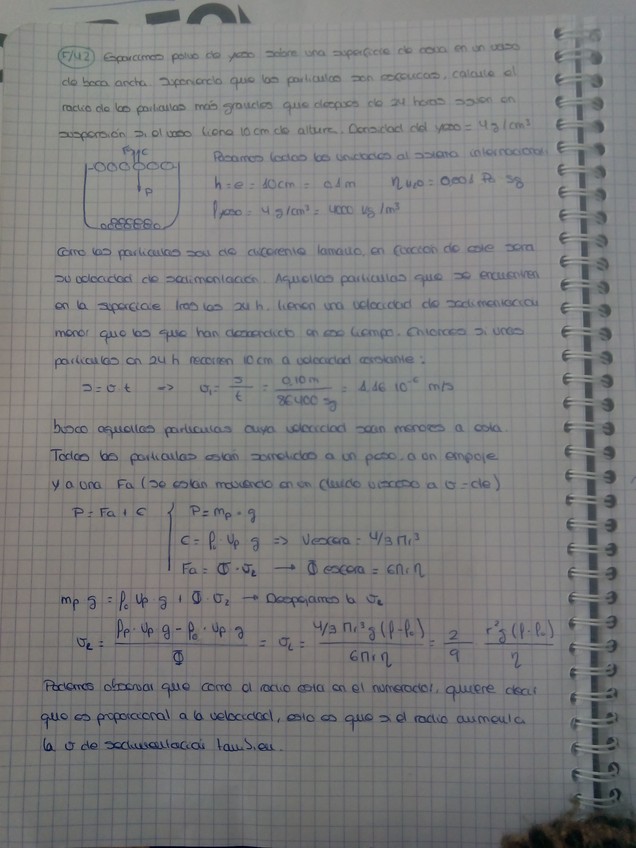 F/U2 Esparcimos polvo de yeso sobre una superficie de agua en un vaso
de boca ancha. Suponiendo que las particulas son esfericas, calcule el
radio de las particulas más grandes que despues de 24 horas siguen en
suspensión si el vaso tiene 10 cm de altura. Densidad del yeso = 4 g/cm³
Pasamos todas las unidades al sistema internacional
h = e = 10 cm = 0.1 m η H₂O = 0,001 Pa sg
ρ yeso = 4 g/cm³ = 4000 kg/m³
P
Como las particulas son de diferente tamaño, en función de este sera
su velocidad de sedimentación. Aquellas particulas que se encuentren
en la superficie tras las 24 h. tienen una velocidad de sedimentación
menor que las que han descendido en ese tiempo. Entonces si unas
particulas en 24 h recorren 10 cm a velocidad constante:
s = v t => v₁ = s/t = 0,10 m / 86400 sg = 1.16 10⁻⁶ m/s
busco aquellas particulas cuya velocidad sean menores a esta.
Todas las particulas están sometidas a un peso, a un empuje
y a una Fa (se estan moviendo en un fluido viscoso a v = cte)
P = Fa + E { P = mp · g
E = ρ₀ Vp g => V esfera = 4/3 Π r³
Fa = Φ · v₂ → Φ esfera = 6 Π r η
mp g = ρ₀ Vp g + Φ · v₂ → Despejamos la v₂
v₂ = (ρp · Vp · g - ρ₀ · Vp · g) / Φ = v₂ = 4/3 Π r³ g (ρ - ρ₀) / 6 Π r η = 2/9 r² g (ρ - ρ₀) / η
Podemos observar que como el radio esta en el numerador, quiere decir
que es proporcional a la velocidad, esto es que si el radio aumenta
la v de sedimentación tambien.